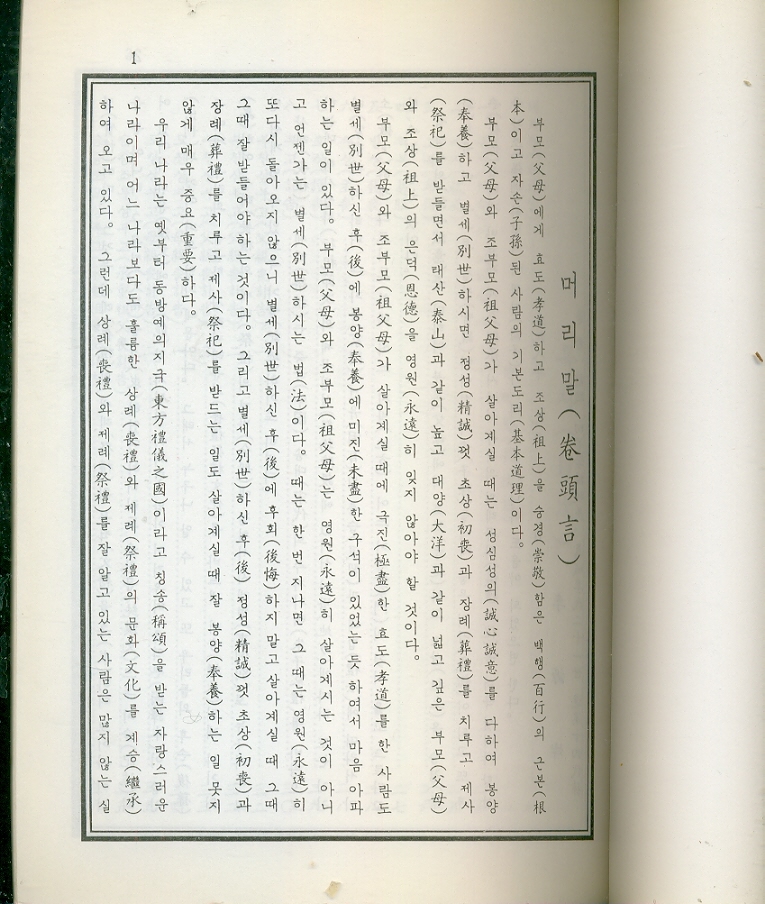 머리말(卷頭言)
부모(父母)에게 효도(孝道)하고 조상(祖上)을 숭경(崇敬)함은 백행(百行)의 근본(根
本)이고 자손(子孫)된 사람의 기본도리(基本道理)이다.
부모(父母)와 조부모(祖父母)가 살아계실 때는 성심성의(誠心誠意)를 다하여 봉양
(奉養)하고 별세(別世)하시면 정성(精誠)껏 초상(初喪)과 장례(葬禮)를 치루고 제사
(祭祀)를 받들면서 태산(泰山)과 같이 높고 대양(大洋)과 같이 넓고 깊은 부모(父母)
와 조상(祖上)의 은덕(恩德)을 영원(永遠)히 잊지 않아야 할 것이다.
부모(父母)와 조부모(祖父母)가 살아계실 때에 극진(極盡)한 효도(孝道)를 한 사람도
별세(別世)하신 후(後)에 봉양(奉養)에 미진(未盡)한 구석이 있었는 듯 하여서 마음 아파
하는 일이 있다. 부모(父母)와 조부모(祖父母)는 영원(永遠)히 살아계시는 것이 아니
고 언젠가는 별세(別世)하시는 법(法)이다. 때는 한 번 지나면 그 때는 영원(永遠)히
또다시 돌아오지 않으니 별세(別世)하신 후(後)에 후회(後悔)하지 말고 살아계실 때 그때
그때 잘 받들어야 하는 것이다. 그리고 별세(別世)하신 후(後) 정성(精誠)껏 초상(初喪)과
장례(葬禮)를 치루고 제사(祭祀)를 받드는 일도 살아계실 때 잘 봉양(奉養)하는 일 못지
않게 매우 중요(重要)하다.
우리 나라는 옛부터 동방예의지국(東方禮儀之國)이라고 칭송(稱頌)을 받는 자랑스러운
나라이며 어느 나라보다도 훌륭한 상례(喪禮)와 제례(祭禮)의 문화(文化)를 계승(繼承)
하여 오고 있다. 그런데 상례(喪禮)와 제례(祭禮)를 잘 알고 있는 사람은 많지 않는 실
1